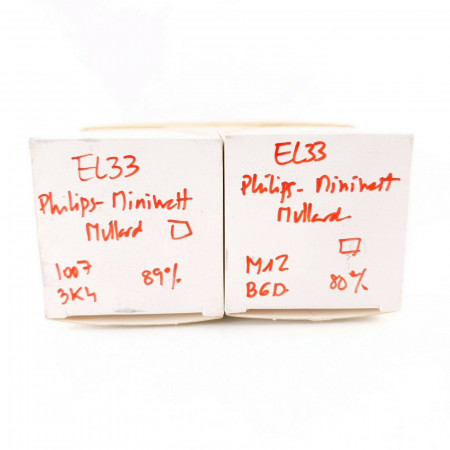 EL33
Philips- Miniwatt
Mullard
1007
3K4
89%
EL33
Philips- Miniwatt
Mullard
M1Z
B6D
80%